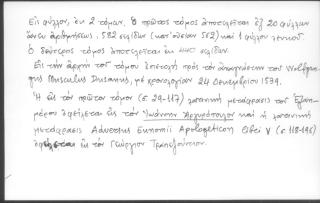 Εἰς φύλλον, ἐν 2 τόμοις. Ὁ πρῶτος τόμος ἀποτελεῖται ἐξ 20 φύλλων
ἄνευ ἀριθμήσεως, 582 σελίδων (κατ' οὐσίαν 562) καὶ 1 φύλλου λευκοῦ.
Ὁ δεύτερος τόμος ἀποτελεῖται ἐκ 440 σελίδων.
Εἰς τὴν ἀρχὴν τοῦ τόμου ἐπιστολὴ πρὸς τὸν ἀναγνώστην τοῦ Wolfgan-
gus Musculus Dusanus, μὲ χρονολογίαν 24 Δεκεμβρίου 1539.
Ἡ εἰς τὸν πρῶτον τόμον (σ. 29-117) λατινικὴ μετάφρασις τοῦ Ἑξαη-
μέρου ὀφείλεται εἰς τὸν Ἰωάννην Ἀργυρόπουλον καὶ ἡ λατινικὴ
μετάφρασις Adversus Eunomii Apologeticon Libri V (σ. 118-196)
ὀφείλεται εἰς τὸν Γεώργιον Τραπεζούντιον.